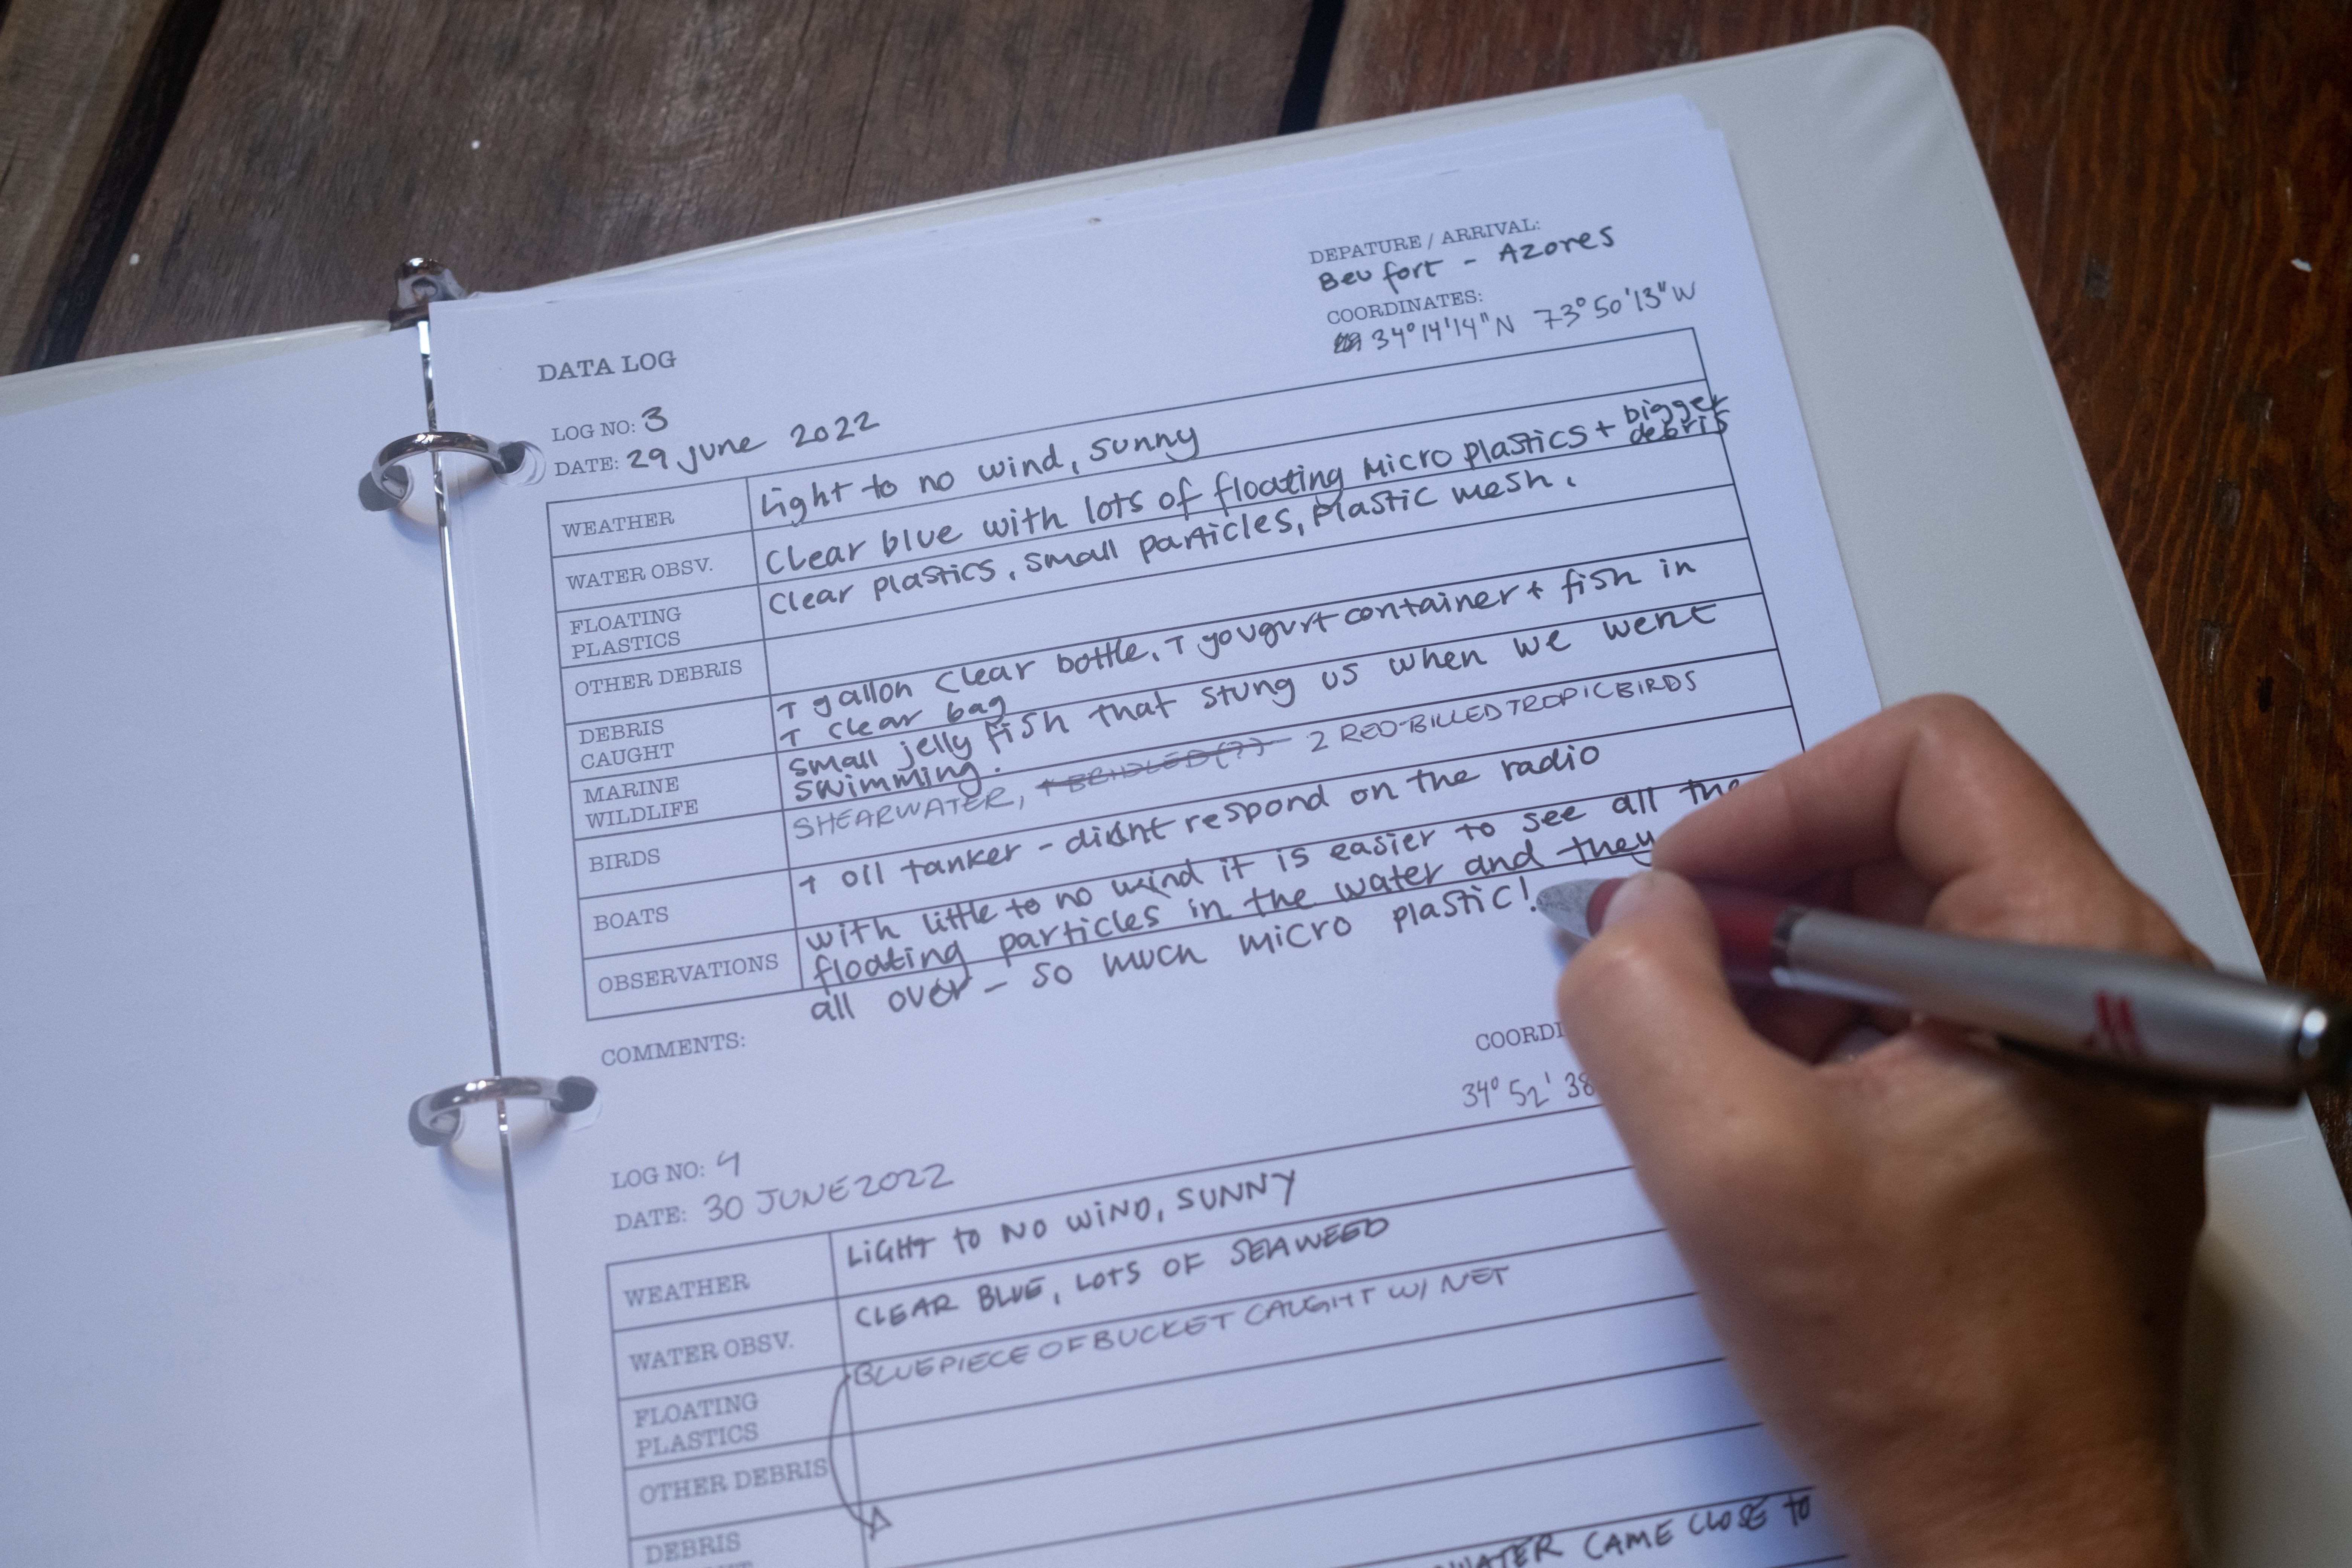 DEPATURE / ARRIVAL:
Beufort - Azores
COORDINATES:
34°14'14"N 73°50'13"W
DATA LOG
LOG NO: 3
DATE: 29 june 2022
WEATHER
Light to no wind, sunny
WATER OBSV.
Clear blue with lots of floating micro plastics + bigger debris
FLOATING
PLASTICS
Clear plastics, small particles, plastic mesh.
OTHER DEBRIS
DEBRIS
CAUGHT
1 gallon clear bottle, 1 yougurt container + fish in
1 clear bag
MARINE
WILDLIFE
small jelly fish that stung us when we went
swimming.
BIRDS
SHEARWATER, 1 BRIDLED(?) 2 RED-BILLED TROPICBIRDS
BOATS
1 oil tanker - didnt respond on the radio
OBSERVATIONS
with little to no wind it is easier to see all the
floating particles in the water and they
all over - so much micro plastic!
COMMENTS:
34° 52' 38
LOG NO: 4
DATE: 30 JUNE 2022
WEATHER
LIGHT TO NO WIND, SUNNY
WATER OBSV.
CLEAR BLUE, LOTS OF SEAWEED
FLOATING
PLASTICS
BLUE PIECE OF BUCKET CAUGHT W/ NET
OTHER DEBRIS
DEBRIS
CAME CLOSE TO